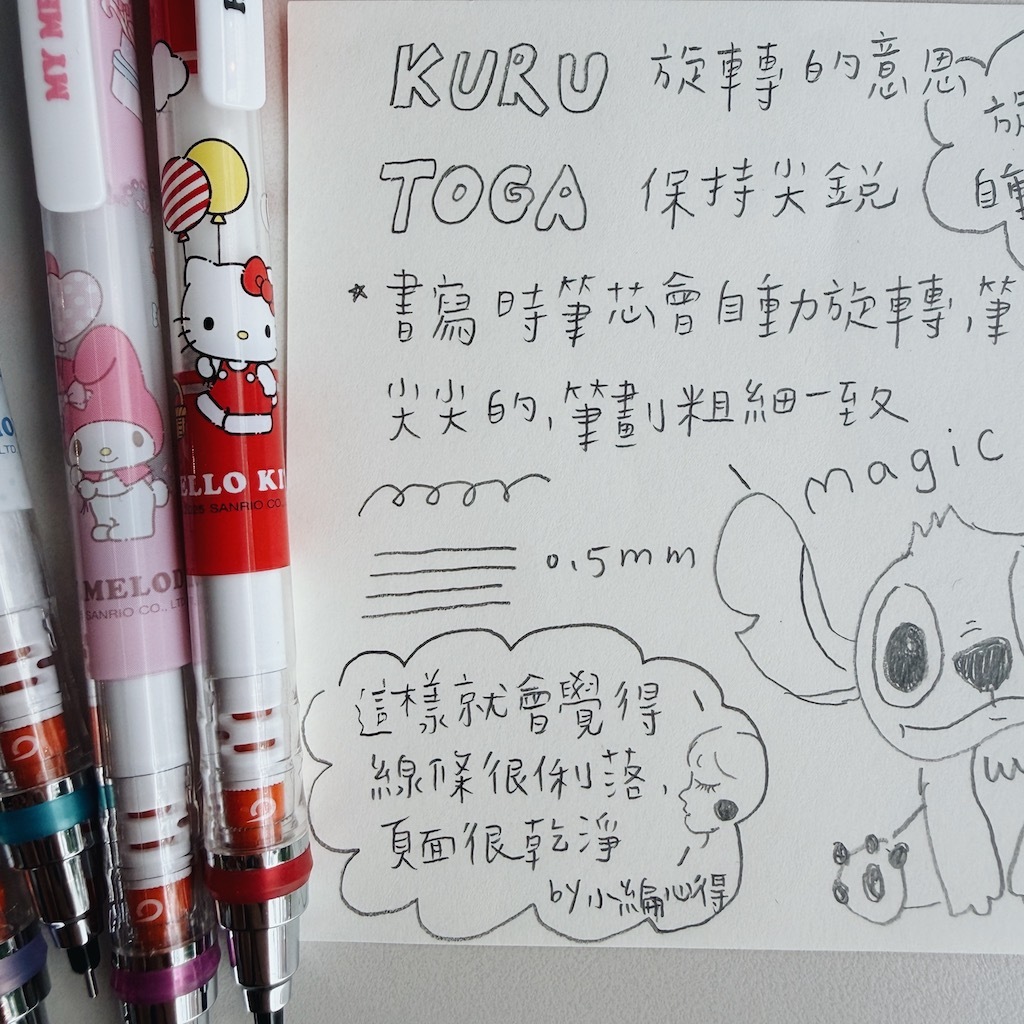 MY ME
KURU 旋轉的意思
旋
自動
TOGA 保持尖銳
*書寫時筆芯會自動旋轉,筆
尖尖的,筆劃粗細一致
magic
0.5mm
這樣就會覺得
線條很俐落,
頁面很乾淨
by小編心得
ELLO KI
SANRIO CO.,
MELOD
SANRIO CO., LTD